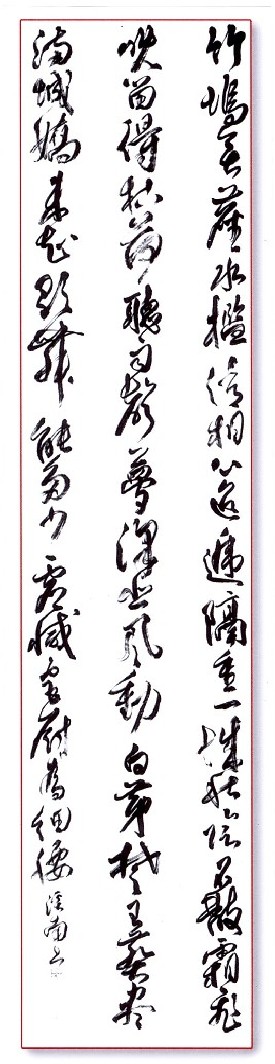 竹塢無塵水檻清相思迢遞隔重城秋陰不散霜飛
晚留得枯荷聽雨聲夢澤悲風動白茅楚王葬盡
滿城嬌未知歌舞能多少虛減宮廚為細腰